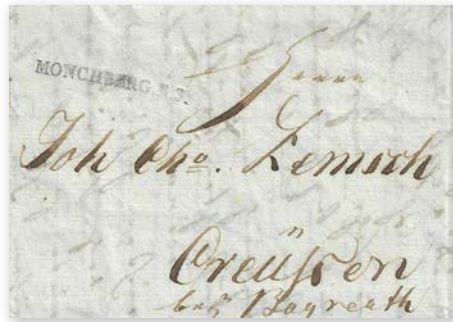 MÖNCHBERG.R.3.
Herrn
Joh Chr. Lemisch
Creüßen
bey Bayreuth